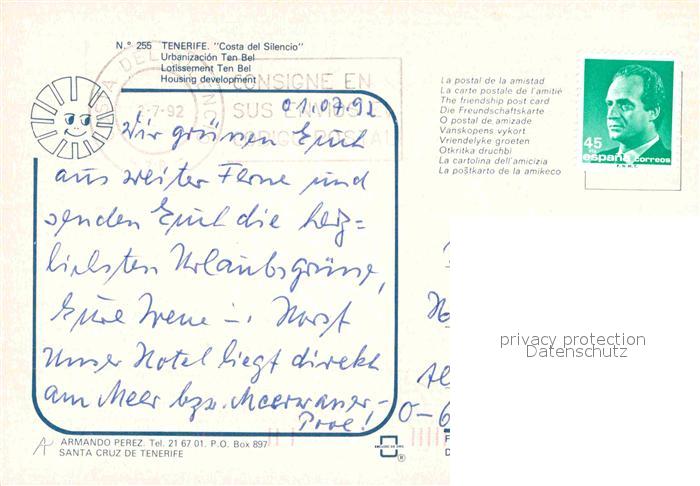 N.º 255 TENERIFE. "Costa del Silencio"
Urbanización Ten Bel
Lotissement Ten Bel
Housing development
CONSIGNE EN
SUS ENVIOS EL
2-7-92
La postal de la amistad
La carte postale de l'amitié
The friendship post card
Die Freundschaftskarte
O postal de amizade
Vanskopens vykort
Vriendelyke groeten
Otkritka druchbi
La cartolina dell'amicizia
La poŝtkarto de la amikeco
45
PTS
españa correos
F.N.M.T.
01.07.92
Wir grüssen Euch
aus weiter Ferne und
senden Euch die herz=
lichsten Urlaubsgrüsse,
Eure Irene u. Horst
Unser Hotel liegt direkt
am Meer bzw. Meerwasser-
Pool!
O-6
privacy protection
Datenschutz
ARMANDO PEREZ. Tel. 21 67 01. P.O. Box 897
SANTA CRUZ DE TENERIFE